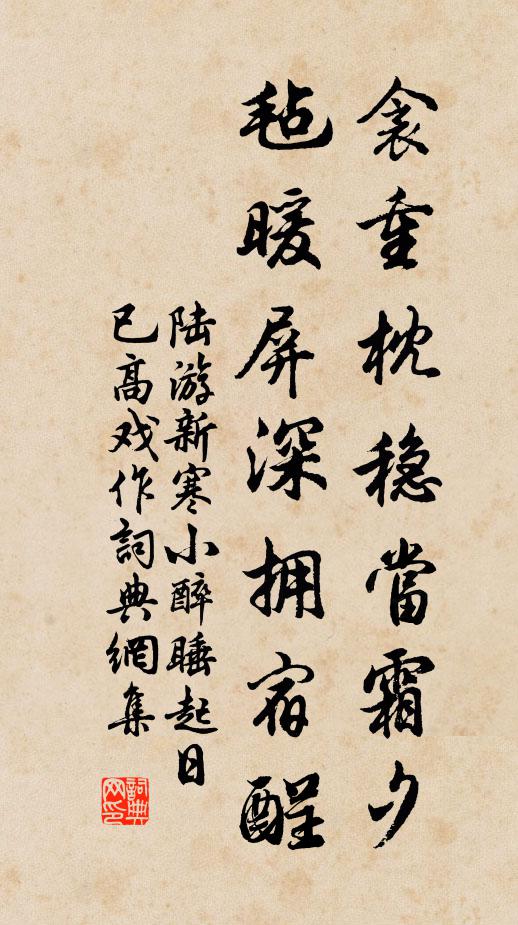 衾重枕稳當霜夕
毡暖屏深拥宿酲
陆游新寒小醉睡起日
已高戏作詞典網集
詞典
网印